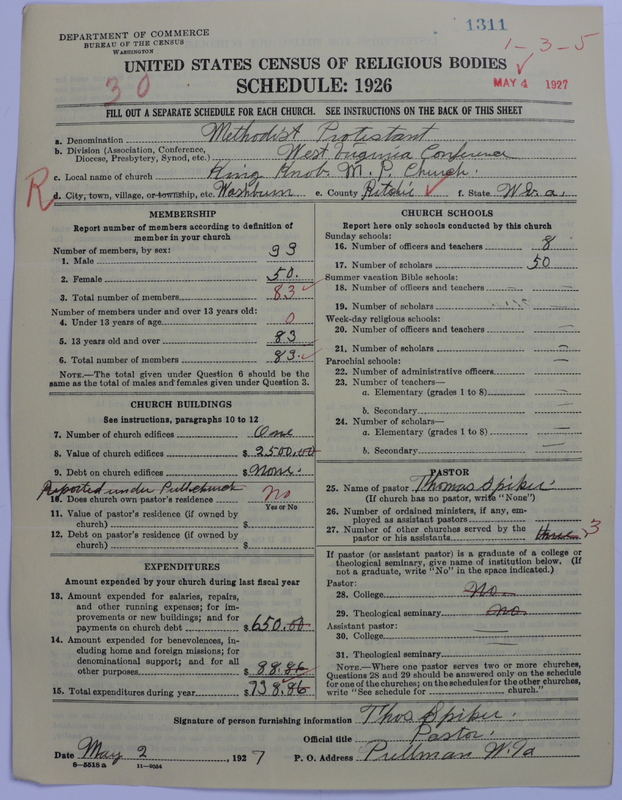 1311
DEPARTMENT OF COMMERCE
BUREAU OF THE CENSUS
WASHINGTON
1-3-5
UNITED STATES CENSUS OF RELIGIOUS BODIES
30
SCHEDULE: 1926
MAY 4 1927
FILL OUT A SEPARATE SCHEDULE FOR EACH CHURCH. SEE INSTRUCTIONS ON THE BACK OF THIS SHEET
a. Denomination Methodist Protestant
b. Division (Association, Conference, Diocese, Presbytery, Synod, etc.) West Virginia Conference
c. Local name of church King Knob M. P. Church.
R
d. City, town, village, or township, etc. Washburn e. County Ritchie f. State W. Va.
MEMBERSHIP
Report number of members according to definition of
member in your church
Number of members, by sex:
1. Male 33
2. Female 50.
3. Total number of members 83
Number of members under and over 13 years old:
4. Under 13 years of age 0
5. 13 years old and over 83
6. Total number of members 83.
NOTE.—The total given under Question 6 should be
same as the total of males and females given under Question 3.
CHURCH BUILDINGS
See instructions, paragraphs 10 to 12
7. Number of church edifices One
8. Value of church edifices $ 2500.00
9. Debt on church edifices $ None.
Reported under Pull church
10. Does church own pastor's residence? No
Yes or No
11. Value of pastor's residence (if owned by
church) $
12. Debt on pastor's residence (if owned by
church) $
EXPENDITURES
Amount expended by your church during last fiscal year
13. Amount expended for salaries, repairs,
and other running expenses; for im-
provements or new buildings; and for
payments on church debt $ 650.00
14. Amount expended for benevolences, in-
cluding home and foreign missions; for
denominational support; and for all
other purposes $ 88.86
15. Total expenditures during year $ 738.86
CHURCH SCHOOLS
Report here only schools conducted by this church
Sunday schools:
16. Number of officers and teachers 8
17. Number of scholars 50
Summer vacation Bible schools:
18. Number of officers and teachers —
19. Number of scholars
Week-day religious schools:
20. Number of officers and teachers —
21. Number of scholars —
Parochial schools:
22. Number of administrative officers —
23. Number of teachers—
a. Elementary (grades 1 to 8) —
b. Secondary —
24. Number of scholars—
a. Elementary (grades 1 to 8) —
b. Secondary —
PASTOR
25. Name of pastor Thomas Spiker.
(If church has no pastor, write "None")
26. Number of ordained ministers, if any, em-
ployed as assistant pastors
27. Number of other churches served by the
pastor or his assistants three 3
If pastor (or assistant pastor) is a graduate of a college or
theological seminary, give name of institution below. (If
not a graduate, write "No" in the space indicated.)
Pastor:
28. College No.
29. Theological seminary no
Assistant pastor:
30. College —
31. Theological seminary —
NOTE.—Where one pastor serves two or more churches,
Questions 28 and 29 should be answered only on the schedule
for one of the churches; on the schedules for the other churches,
write "See schedule for church."
Signature of person furnishing information Thos Spiker.
Official title Pastor.
Date May 2, 1927 P. O. Address Pullman W. Va
8-5518 a 11-9054